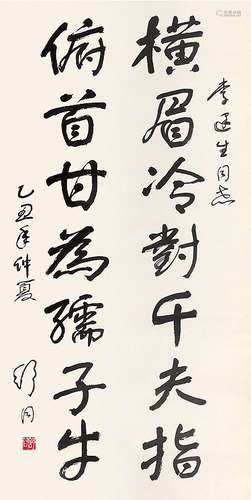 李運生同志
橫眉冷對千夫指
俯首甘為孺子牛
乙丑年仲夏
舒同